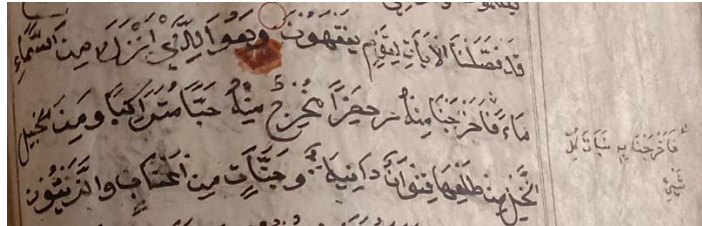 قَدْ فَصَّلْنَا الْاٰيَاتِ لِقَوْمٍ يَفْقَهُونَ وَهُوَا الَّذِي أَنْزَلَ مِنَ السَّمَاءِ
مَاءً فَأَخْرَجْنَا مِنْهُ خَضِرًا نُخْرِجُ مِنْهُ حَبًّا مُتَرَاكِبًا وَمِنَ النخيل
النَّخْلِ مِنْ طَلْعِهَا قِنْوَانٌ دَانِيَةٌ وَجَنَّاتٍ مِنْ اَعْنَابٍ وَالزَّيْتُونَ
فَاَخْرَجْنَا بِهِ نَبَاتَ كُلِّ
شَيْئٍ